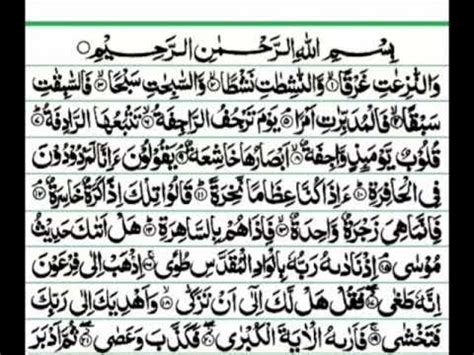 بِسْمِ اللهِ الرَّحْمٰنِ الرَّحِيْمِ
وَالنّٰزِعٰتِ غَرْقًا ۱ وَّالنّٰشِطٰتِ نَشْطًا ۲ وَّالسّٰبِحٰتِ سَبْحًا ۳ فَالسّٰبِقٰتِ
سَبْقًا ۴ فَالْمُدَبِّرٰتِ اَمْرًا ۵ يَوْمَ تَرْجُفُ الرَّاجِفَةُ ۶ تَتْبَعُهَا الرَّادِفَةُ ۷
قُلُوْبٌ يَّوْمَئِذٍ وَّاجِفَةٌ ۸ اَبْصَارُهَا خَاشِعَةٌ ۹ يَقُوْلُوْنَ ءَاِنَّا لَمَرْدُوْدُوْنَ
فِي الْحَافِرَةِ ۱۰ ءَاِذَا كُنَّا عِظَامًا نَّخِرَةً ۱۱ قَالُوْا تِلْكَ اِذًا كَرَّةٌ خَاسِرَةٌ ۱۲
فَاِنَّمَا هِيَ زَجْرَةٌ وَّاحِدَةٌ ۱۳ فَاِذَا هُمْ بِالسَّاهِرَةِ ۱۴ هَلْ اَتٰىكَ حَدِيْثُ
مُوْسٰى ۱۵ اِذْ نَادٰىهُ رَبُّهٗ بِالْوَادِ الْمُقَدَّسِ طُوًى ۱۶ اِذْهَبْ اِلٰى فِرْعَوْنَ
اِنَّهٗ طَغٰى ۱۷ فَقُلْ هَلْ لَّكَ اِلٰٓى اَنْ تَزَكّٰى ۱۸ وَاَهْدِيَكَ اِلٰى رَبِّكَ
فَتَخْشٰى ۱۹ فَاَرٰىهُ الْاٰيَةَ الْكُبْرٰى ۲۰ فَكَذَّبَ وَعَصٰى ۲۱ ثُمَّ اَدْبَرَ